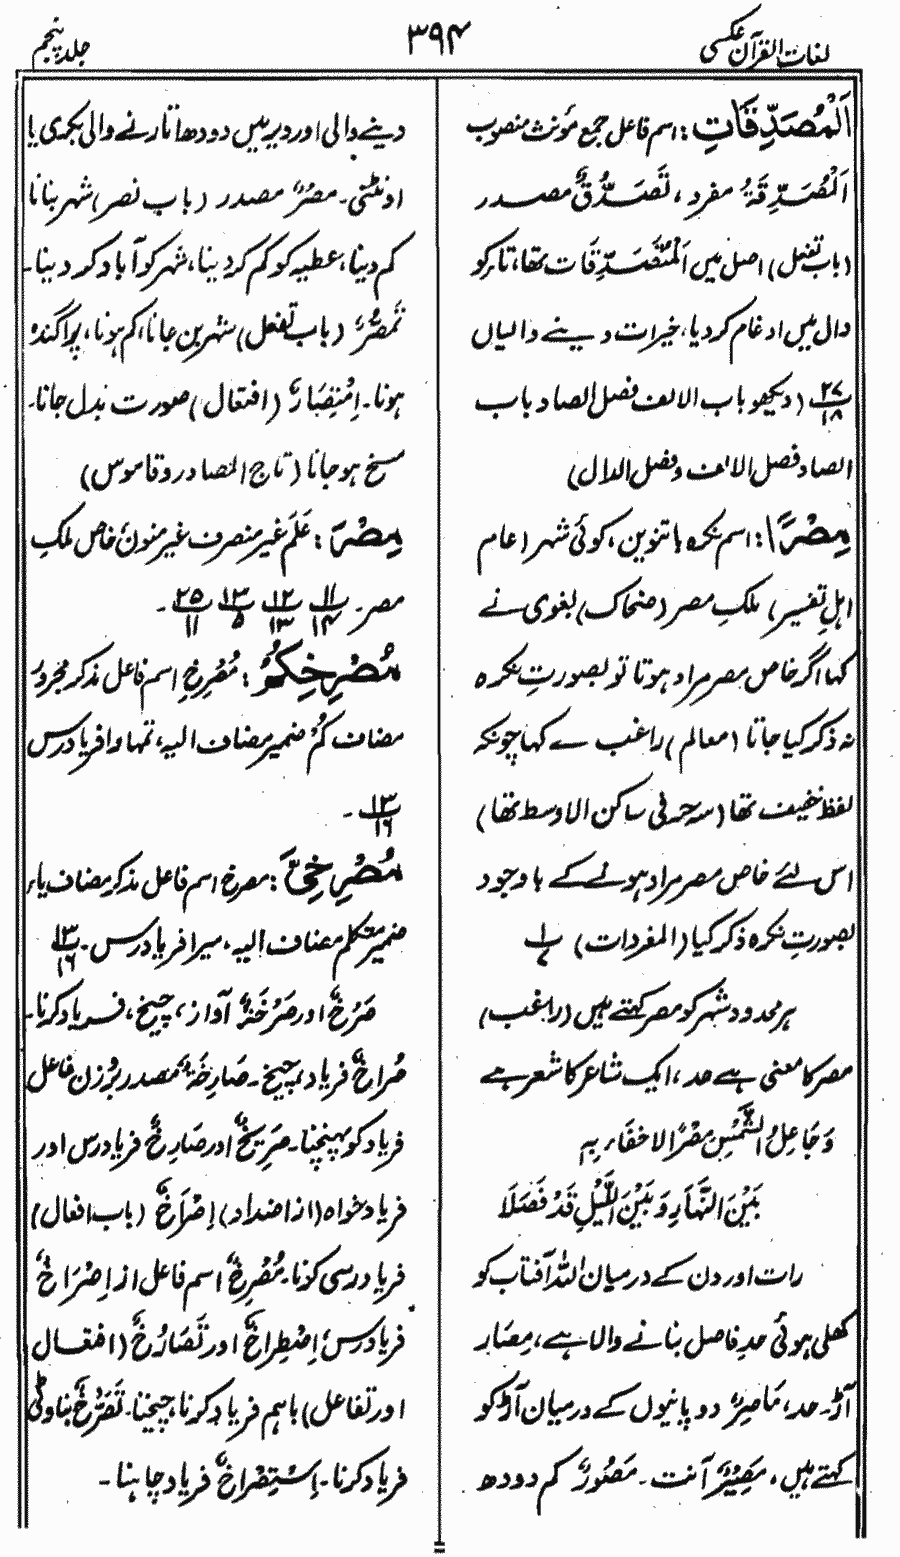 لغات القرآن عکسی
۳۹۴
جلد پنجم
اَلْمُصَدِّقَاتِ: اسم فاعل جمع مؤنث منصوب
اَلْمُصَدِّقَۃُ مفرد، تَصَدُّقٌ مصدر
(باب تفعل) اصل میں اَلْمُتَصَدِّقَات تھا، تار کو
دال میں ادغام کر دیا، خیرات دینے والیاں
۲۷/۱۸ (دیکھو باب الالف فصل الصاد باب
الصاد فصل الالف وفصل الدال)
مِصْرًا: اسم نکرہ باتنوین، کوئی شہر (عام
اہلِ تفسیر) ملکِ مصر (ضحاک) بغوی نے
کہا اگر خاص مصر مراد ہوتا تو بصورتِ نکرہ
نہ ذکر کیا جاتا (معالم) راغب نے کہا چونکہ
لفظ خفیف تھا (سہ حرفی ساکن الاوسط تھا)
اس لئے خاص مصر مراد ہونے کے باوجود
بصورتِ نکرہ ذکر کیا (المفردات) ۱/۷
ہر محدود شہر کو مصر کہتے ہیں (راغب)
مصر کا معنی ہے حد، ایک شاعر کا شعر ہے
وَجَاعِلُ الشَّمْسِ مِصْرًا لاخفَاءَ بِہٖ
بَیْنَ النَّہَارِ وَبَیْنَ اللَّیْلِ قَدْ فَصَلَا
رات اور دن کے درمیان اللہ آفتاب کو
کھلی ہوئی حدِ فاصل بنانے والا ہے، مِصَار
آڑ۔ حد، مَاصِرٌ دو پانیوں کے درمیان آڑ کو
کہتے ہیں، مَصِیْرٌ آنت۔ مَصُوْرٌ کم دودھ
دینے والی اور دیر میں دودھ اتارنے والی بکری یا
اونٹنی۔ مصْرٌ مصدر (باب نصر) شہر بنانا
کم دینا، عطیہ کو کم کر دینا، شہر کو آباد کر دینا۔
تَمَصُّرٌ (باب تفعل) شہر بن جانا، کم ہونا، پراگندہ
ہونا۔ اِمْتِصَارٌ (افتعال) صورت بدل جانا۔
مسخ ہو جانا (تاج المصادر وقاموس)
مِصْرَ: عَلَم غیر منصرف غیر منون خاص ملکِ
مصر۔ ۱۱/۱۴ ۱۲/۱۳ ۱۳/۵ ۲۵/۱۱۔
مُصْرِخِكُمْ: مُصْرِخِ اسم فاعل مذکر مجرور
مضاف کُمْ ضمیر مضاف الیہ، تمہارا فریاد رس
۱۳/۱۶۔
مُصْرِخِیَّ: مصرخ اسم فاعل مذکر مضاف یاء
ضمیر متکلم مضاف الیہ، میرا فریاد رس۔ ۱۳/۱۶
صَرْخٌ اور صَرْخَۃٌ آواز، چیخ، فریاد کرنا۔
صُراخٌ فریاد، چیخ۔ صَارِخَۃٌ مصدر بروزن فاعل
فریاد کو پہنچنا۔ صَرِیْخٌ اور صَارِخٌ فریاد رس اور
فریاد خواہ (از اضداد) اِصْرَاخٌ (باب افعال)
فریاد رسی کرنا۔ مُصْرِخٌ اسم فاعل از اِصْرَاخٌ
فریاد رس، اِصْطِراخٌ اور تَصَارُخٌ (افتعال
اور تفاعل) باہم فریاد کرنا، چیخنا۔ تَصَرُّخٌ بناوٹی
فریاد کرنا۔ اِسْتِصْراخٌ فریاد چاہنا۔